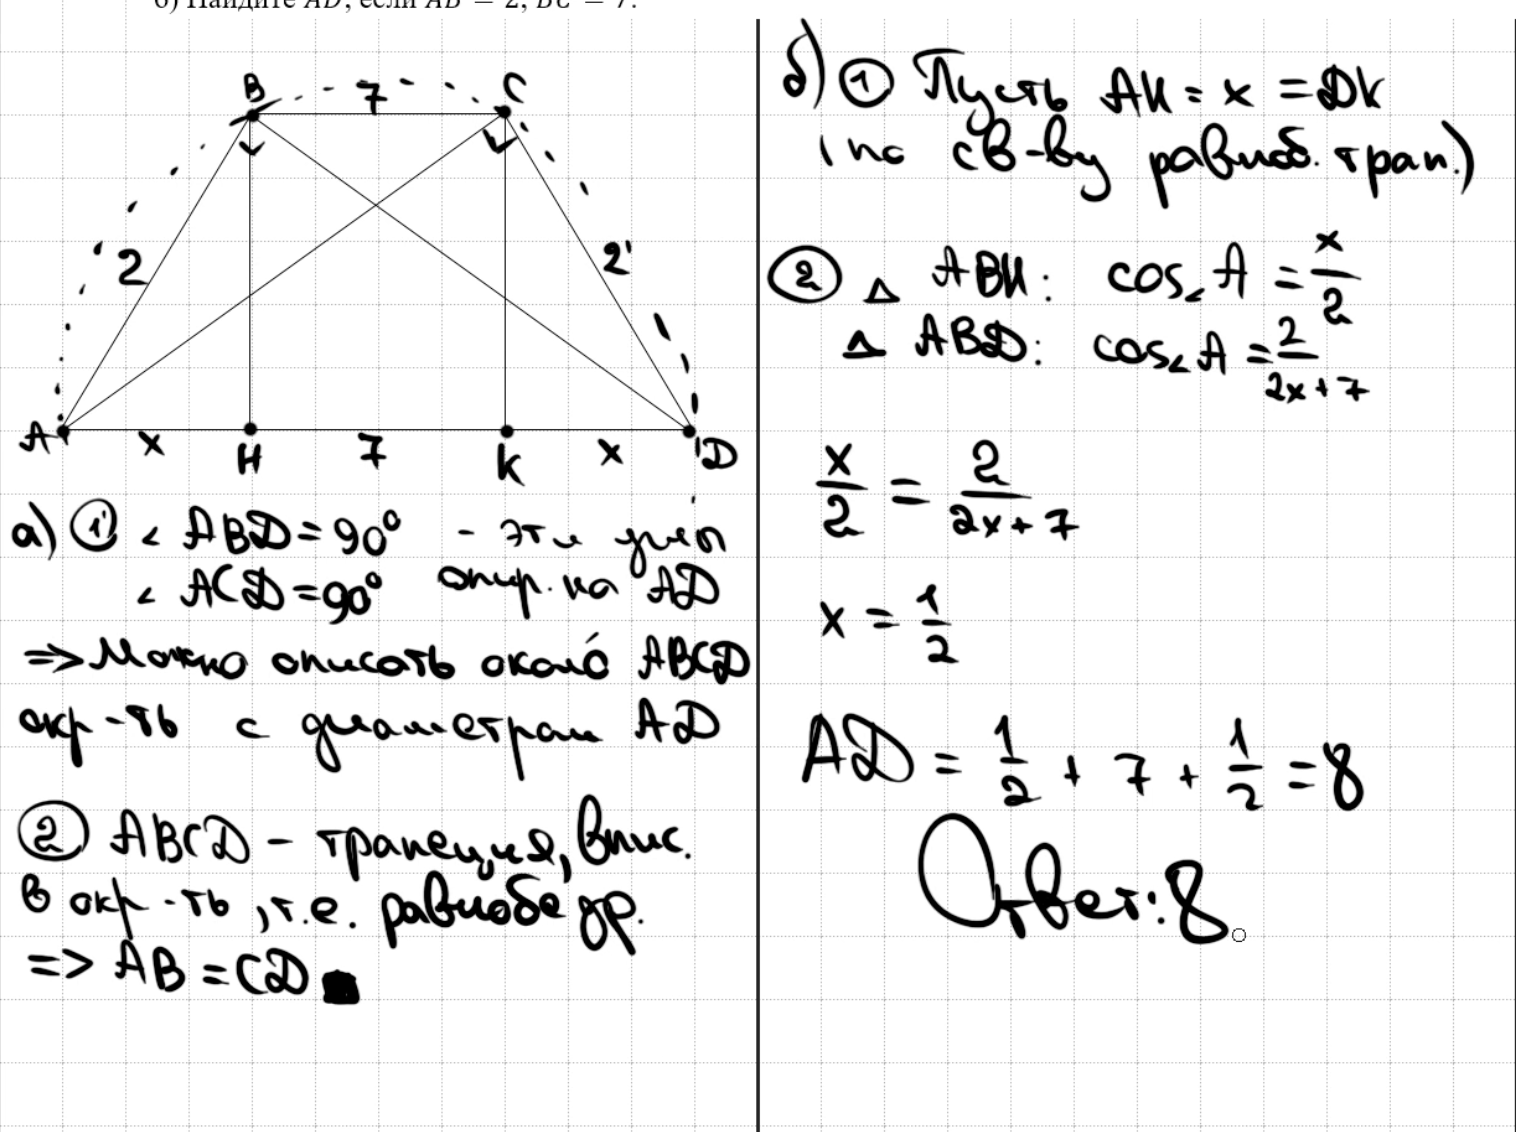 б) Найдите AD, если AB = 2, BC = 7.
B 7 C
2 2
A x H 7 K x D
а) ① ∠ ABD = 90° - эти углы
∠ ACD = 90° опир. на AD
=> Можно описать около ABCD
окр-ть с диаметром AD
② ABCD - трапеция, впис.
в окр-ть, т.е. равнобедр.
=> AB = CD ■
б) ① Пусть AH = x = DK
(по св-ву равноб. трап.)
② △ ABH: cos∠A = x/2
△ ABD: cos∠A = 2/(2x+7)
x/2 = 2/(2x+7)
x = 1/2
AD = 1/2 + 7 + 1/2 = 8
Ответ: 8.